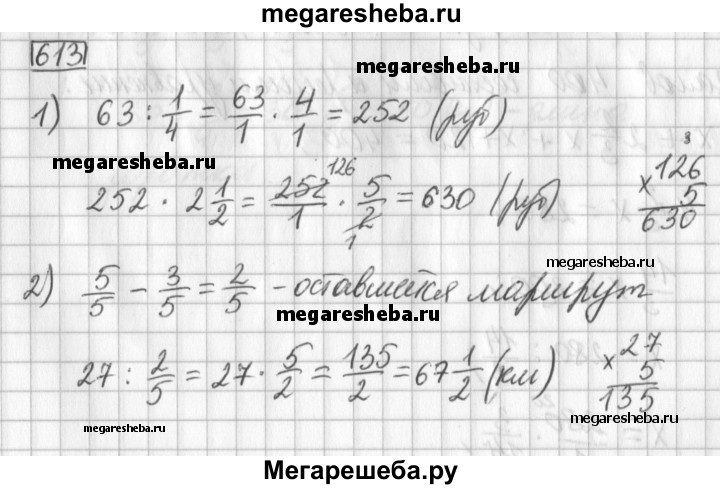 megaresheba.ru
613
megaresheba.ru
1) 63 : 1/4 = 63/1 · 4/1 = 252 (руб)
megaresheba.ru
252 · 2 1/2 = 252/1 · 5/2 = 630 (руб)
126
1
3
126
× 5
630
megaresheba.ru
2) 5/5 - 3/5 = 2/5 - оставшейся маршрут
megaresheba.ru
27 : 2/5 = 27 · 5/2 = 135/2 = 67 1/2 (км)
27
× 5
135
megaresheba.ru
megaresheba.ru
Мегарешеба.ру